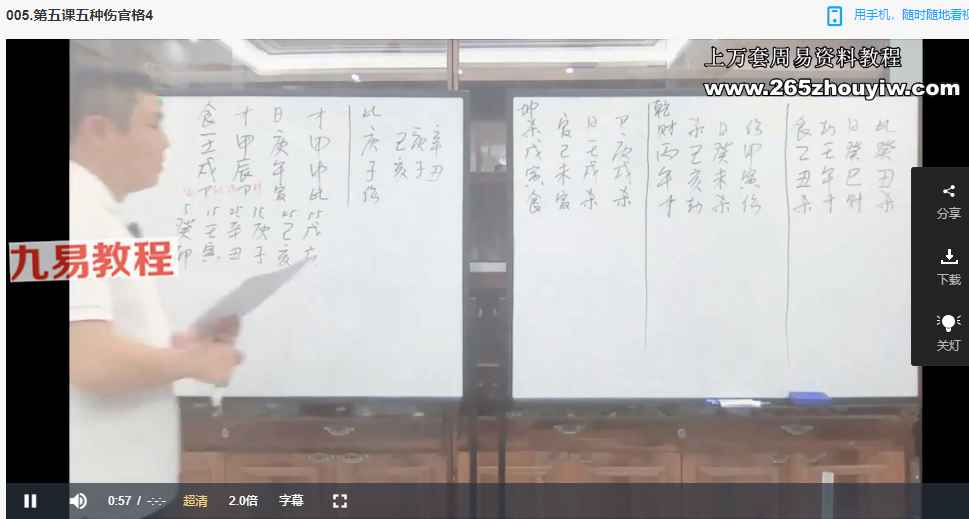 005.第五课五种伤官格4
用手机，随时随地看视
上万套周易资料教程
www.265zhouyiw.com
食 才 日 才
壬 甲 庚 甲
戌 辰 午 申
5 15 25 35 45 55
癸 壬 辛 庚 己 戊
寅 丑 子 亥
比
庚 己 亥 辛
子 亥 子 丑
伤
坤
杀 官 日
戊 己 壬 庚
寅 未 戌 戌
食 官 杀 杀
乾
财 杀 日 伤
丙 己 癸 甲
午 亥 未 寅
才 劫 杀 伤
食 劫 日 比
乙 壬 癸 癸
丑 午 巳 丑
杀 才 财 杀
九易教程
分享
下载
关灯
0:57 / -:-:-
超清
2.0倍
字幕